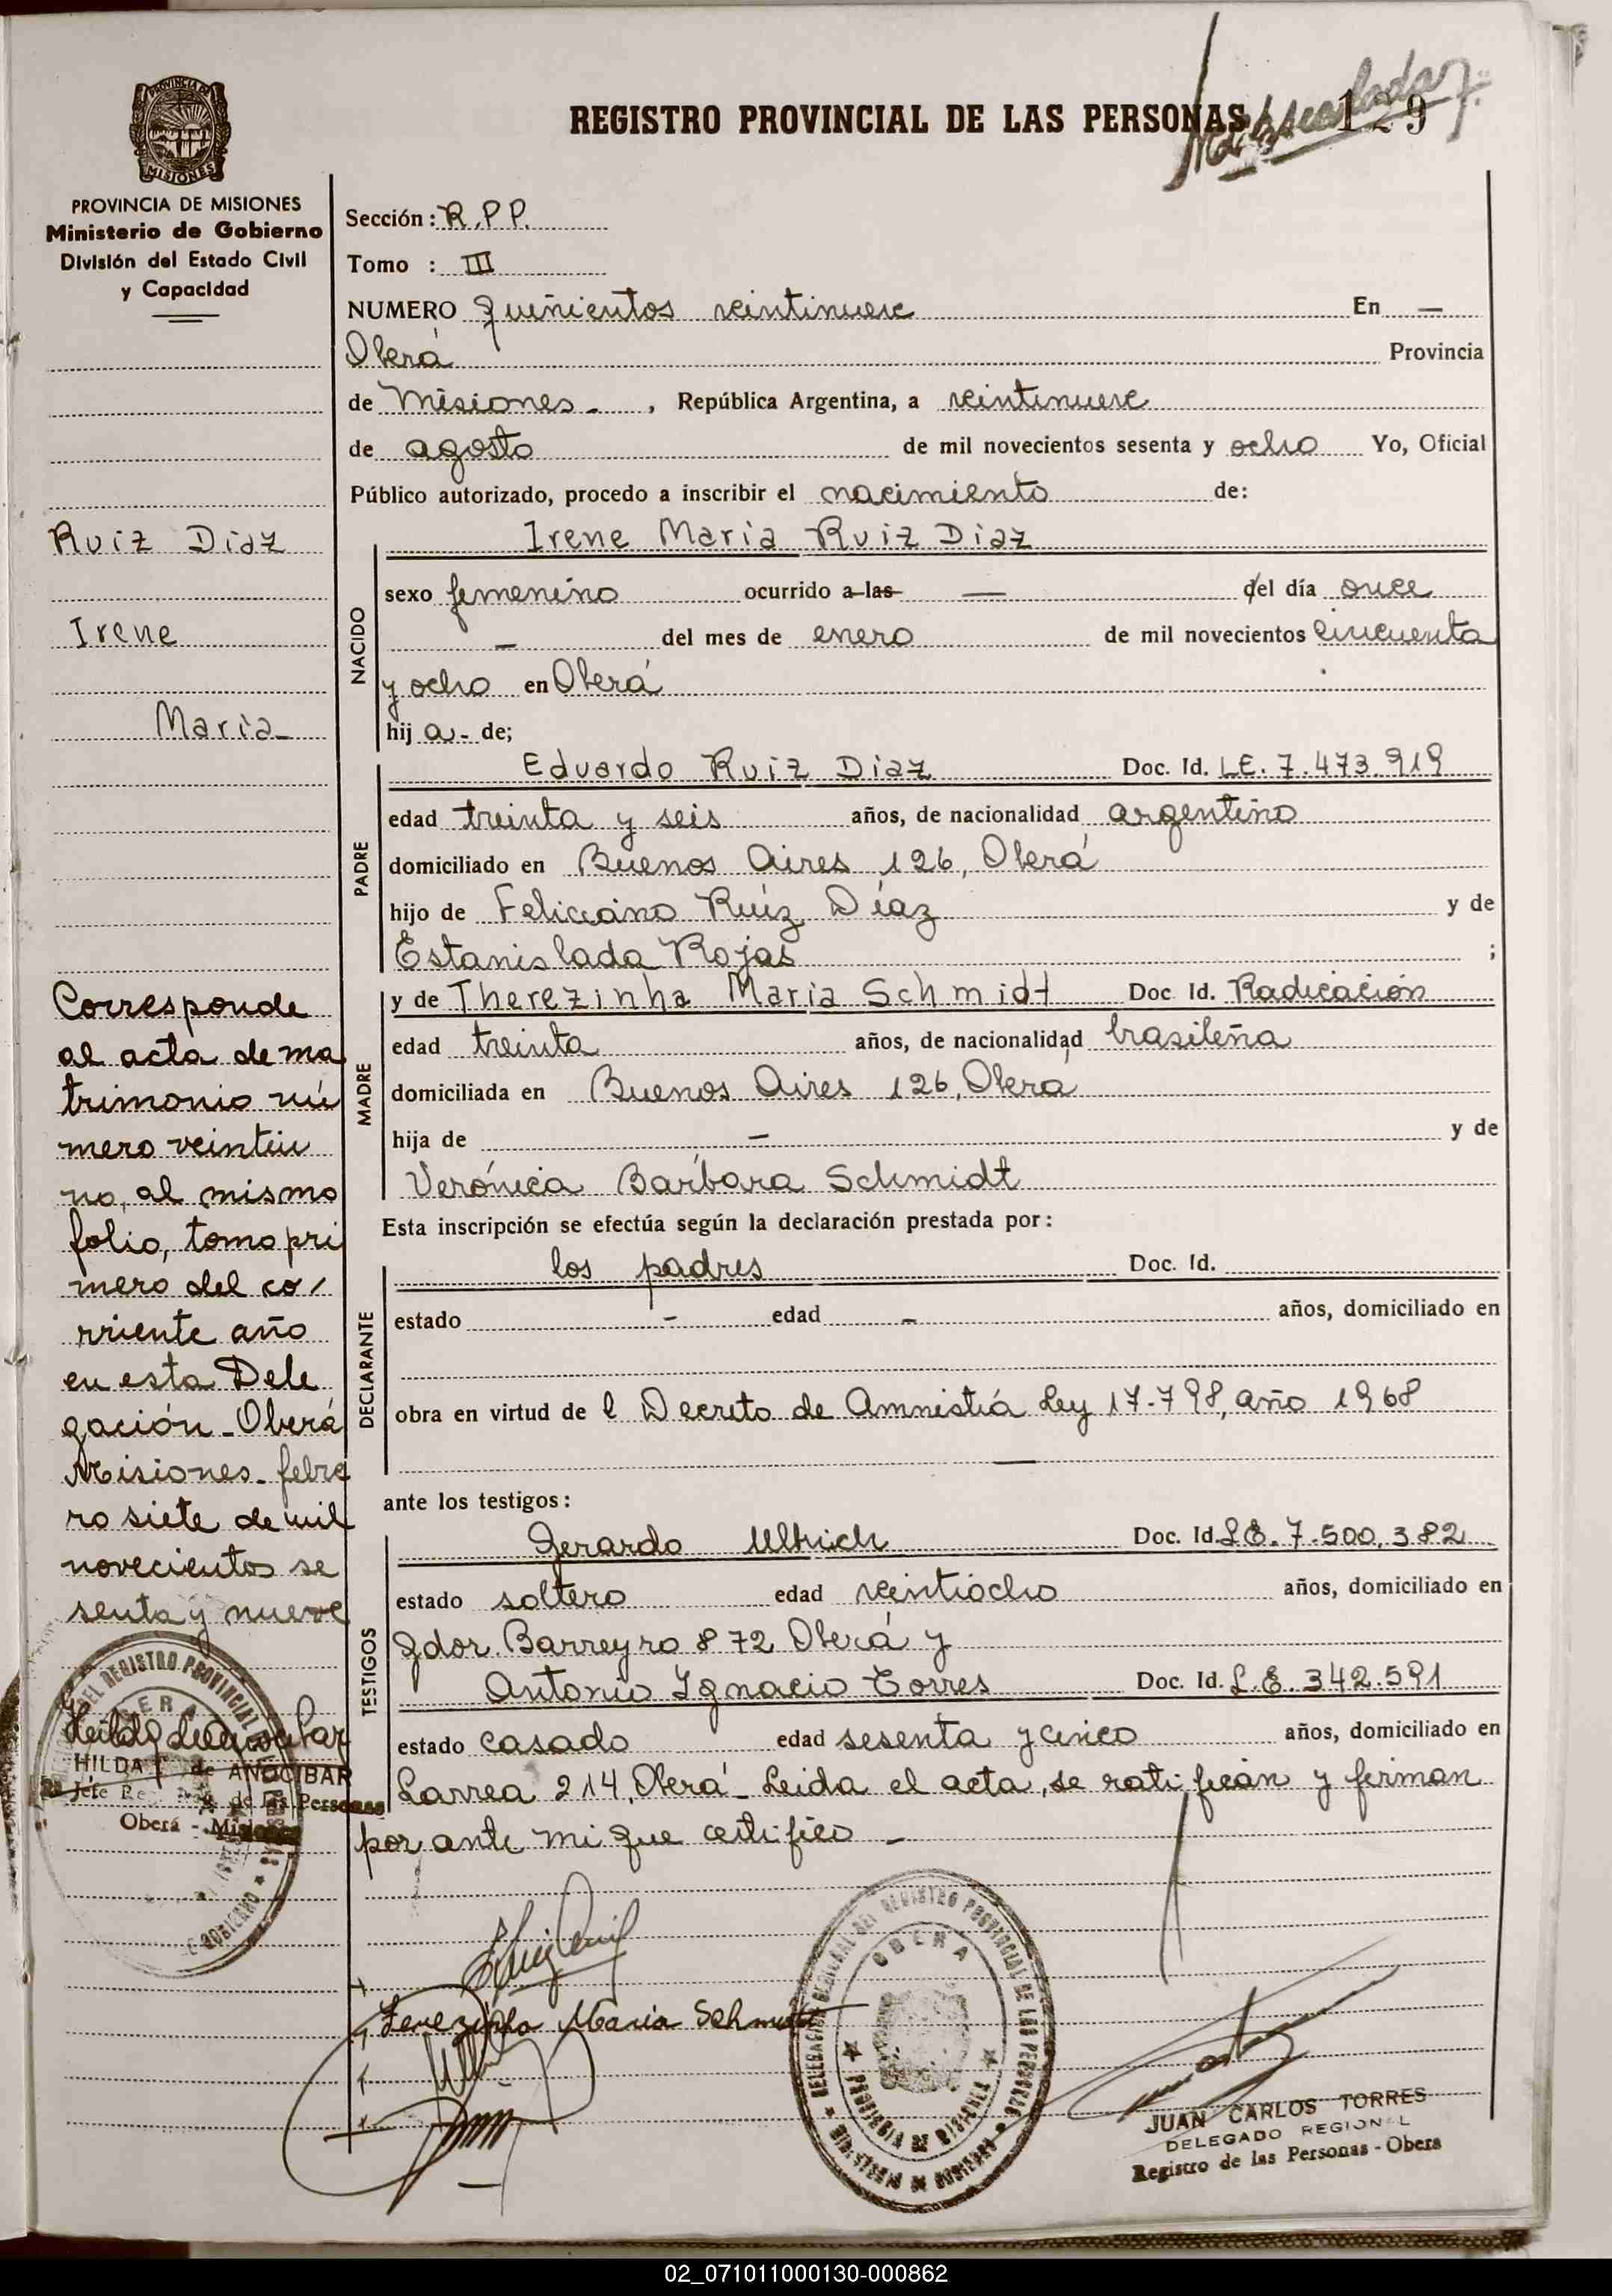 REGISTRO PROVINCIAL DE LAS PERSONAS 129
PROVINCIA DE MISIONES
Ministerio de Gobierno
División del Estado Civil
y Capacidad
Ruiz Diaz
Irene
Maria
Corresponde
al acta de ma
trimonio nú
mero veintiu
no, al mismo
folio, tomo pri
mero del co/
rriente año
en esta Dele
gación - Oberá
Misiones - febre
ro siete de mil
novecientos se
senta y nueve
HILDA de ANOCIBAR
Jefe de las Personas
Oberá - Misiones
Sección: R.P.P.
Tomo : III
NUMERO quinientos veintinueve En —
Oberá Provincia
de Misiones - , República Argentina, a veintinueve
de agosto de mil novecientos sesenta y ocho Yo, Oficial
Público autorizado, procedo a inscribir el nacimiento de:
Irene Maria Ruiz Diaz
NACIDO
sexo femenino ocurrido a las — del día once
— del mes de enero de mil novecientos cincuenta
y ocho en Oberá
hij a - de;
PADRE
Eduardo Ruiz Diaz Doc. Id. L.E. 7.473.919
edad treinta y seis años, de nacionalidad argentino
domiciliado en Buenos Aires 126, Oberá
hijo de Feliciano Ruíz Díaz y de
Estanislada Rojas ;
MADRE
y de Therezinha Maria Schmidt Doc. Id. Radicación
edad treinta años, de nacionalidad brasileña
domiciliada en Buenos Aires 126, Oberá
hija de — y de
Verónica Bárbara Schmidt
Esta inscripción se efectúa según la declaración prestada por:
DECLARANTE
los padres Doc. Id.
estado - edad - años, domiciliado en
obra en virtud de l Decreto de Amnistía Ley 17-798, año 1968
—
ante los testigos:
TESTIGOS
Gerardo Ullrich Doc. Id. L.E. 7.500.382
estado soltero edad veintiocho años, domiciliado en
Gdor. Barreyro 872 Oberá y
Antonio Ignacio Torres Doc. Id. L.E. 342.591
estado casado edad sesenta y cinco años, domiciliado en
Larrea 214, Oberá - Leida el acta, se ratifican y firman
por ante mi que certifico -
Terezinha Maria Schmidt
DELEGACION REGIONAL DEL REGISTRO PROVINCIAL DE LAS PERSONAS
OBERA
PROVINCIA DE MISIONES
MINISTERIO DE GOBIERNO
JUAN CARLOS TORRES
DELEGADO REGIONAL
Registro de las Personas - Obera
02_071011000130-000862